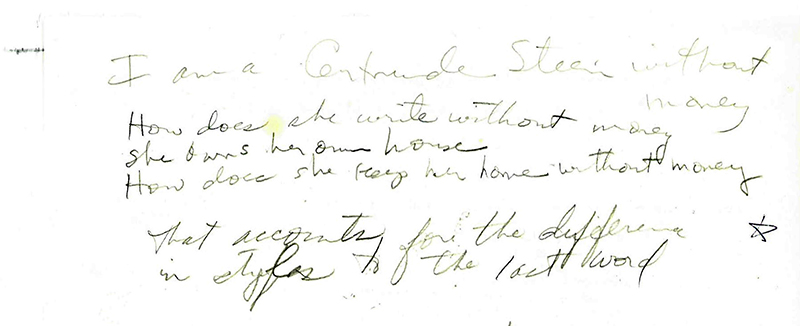 I am a Gertrude Stein without
money
How does she write without money
she owns her own house
How does she keep her home without money
That accounts for the difference ☆
in styles to the last word